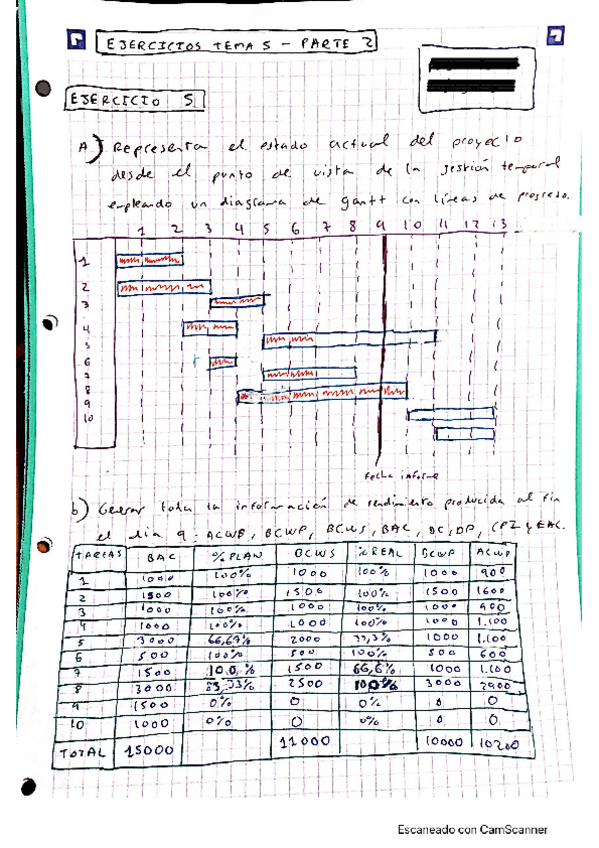 EJERCICIOS TEMA 5 - PARTE 2
EJERCICIO 5
A) Representa el estado actual del proyecto
desde el punto de vista de la gestión temporal
empleando un diagrama de gantt con líneas de progreso.
1 2 3 4 5 6 7 8 9 10 11 12 13
1
2
3
4
5
6
7
8
9
10
fecha informe
b) Generar toda la información de rendimiento producida al fin
el día 9: ACWP, BCWP, BCWS, BAC, DC, DP, CPI y EAC.
TAREAS BAC %PLAN BCWS %REAL BCWP ACWP
1 1000 100% 1000 100% 1000 900
2 1500 100% 1500 100% 1500 1600
3 1000 100% 1000 100% 1000 900
4 1000 100% 1000 100% 1000 1.100
5 3000 66,67% 2000 33,3% 1000 1.100
6 500 100% 500 100% 500 600
7 1500 100% 1500 66,6% 1000 1.100
8 3000 83,33% 2500 100% 3000 2900
9 1500 0% 0 0% 0 0
10 1000 0% 0 0% 0 0
TOTAL 15000 11000 10000 10200
Escaneado con CamScanner